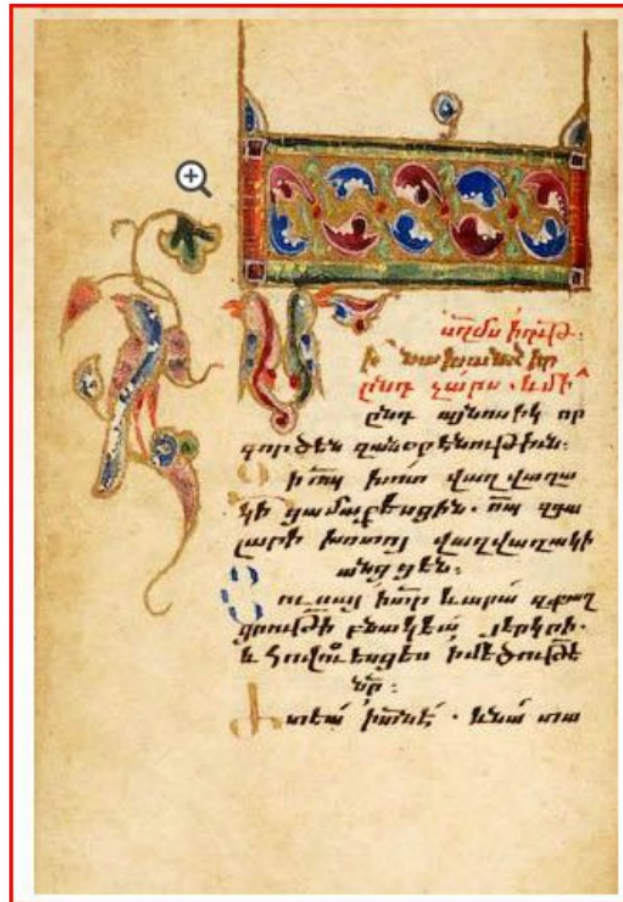 նախանձ իր
ընդ չարս. և մի
ընդ այնոսիկ որ
գործեն զանօրէնութիւն:
Զի որպ խոտ վաղ վաղա
կի ցամաքեսցին. որպ զդա
լարի խոտոյ վաղվաղակի
անցցեն:
Յուսայ ի տր և արա զքաղ
ցրութի բնակեա յերկրի.
և հովուեսցես ի մեծութե
նր:
և նա տա